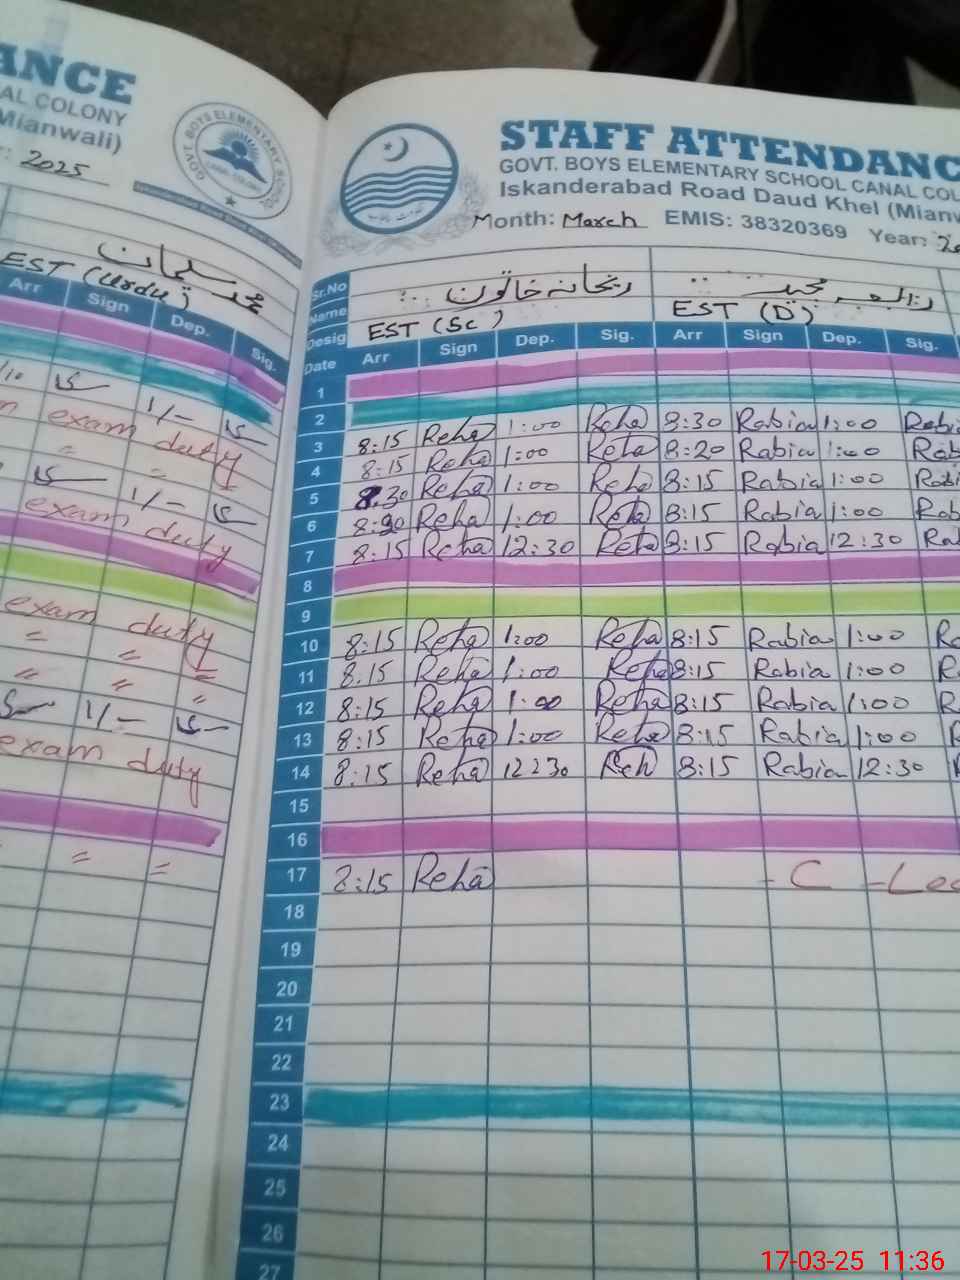 ANCE
AL COLONY
Mianwali)
2025
GOVT. BOYS ELEMENTARY SCHOOL
CANAL COLONY
محمد سلیمان
EST (Urdu)
Arr Sign Dep. Sig.
1/-
exam duty
" " "
1/-
exam duty
exam duty
" " "
" " "
1/-
exam duty
" "
STAFF ATTENDANC
GOVT. BOYS ELEMENTARY SCHOOL CANAL COL
Iskanderabad Road Daud Khel (Mianw
Month: March EMIS: 38320369 Year: 20
Sr.No
Name ریحانہ خاتون
Desig EST (Sc) EST (D)
Date Arr Sign Dep. Sig. Arr Sign Dep. Sig.
1
2
3 8:15 Reha 1:00 Reha 8:30 Rabia 1:00 Rabi
4 8:15 Reha 1:00 Reha 8:20 Rabia 1:00 Rab
5 8.30 Reha 1:00 Reha 8:15 Rabia 1:00 Rabi
6 8:20 Reha 1:00 Reha 8:15 Rabia 1:00 Ra
7 8:15 Reha 12:30 Reha 8:15 Rabia 12:30 Ra
8
9
10 8:15 Reha 1:00 Reha 8:15 Rabia 1:00 Ra
11 8.15 Reha 1:00 Reha 8:15 Rabia 1:00 R
12 8:15 Reha 1:00 Reha 8:15 Rabia 1:00 R
13 8:15 Reha 1:00 Reha 8:15 Rabia 1:00 R
14 8:15 Reha 12230 Reh 8:15 Rabia 12:30 R
15
16
17 8:15 Reha - C - Lea
18
19
20
21
22
23
24
25
26
27
17-03-25 11:36